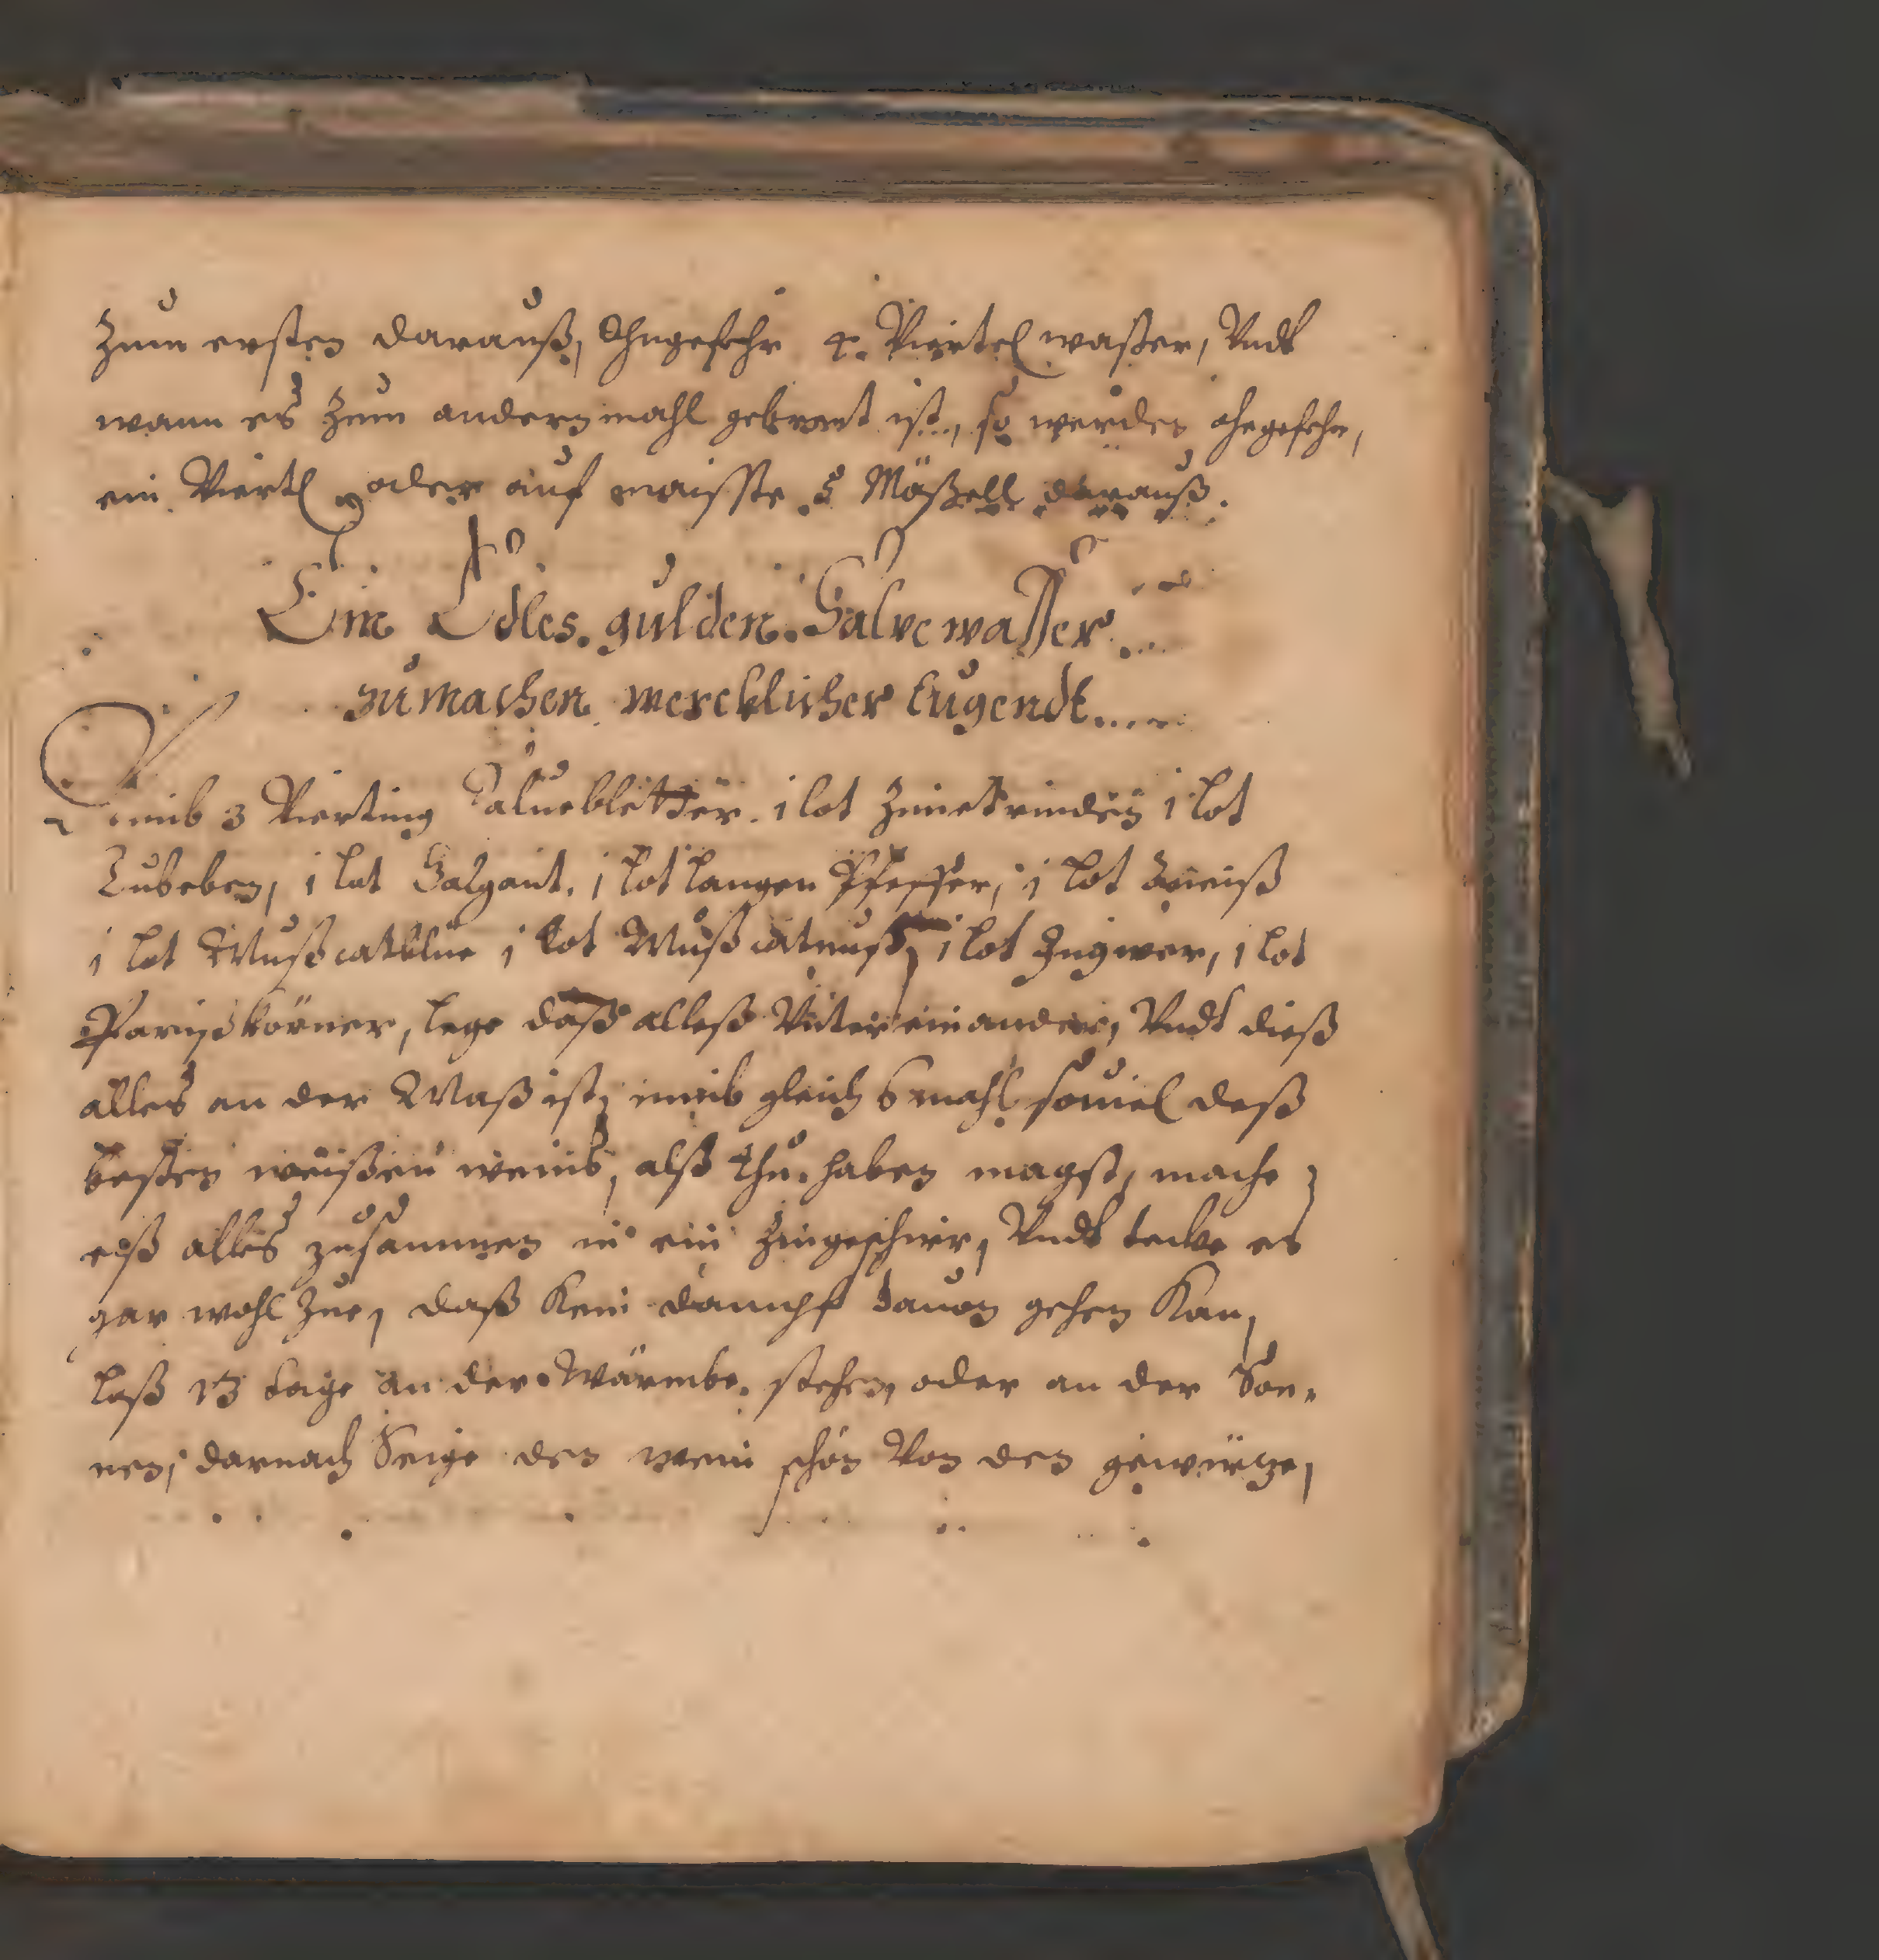 Zum ersten darauß, Ohngefehr 4. Viertel waßer, Vndt
wann es Zum andern mahl gebrent ist, so werden ohngefehr,
ein Viertl oder auf maisste 5 Mäßell darauß.
Ein Edles gulden Salve wasser
zu machen mercklicher tugendt
Nimb 3 Vierting Salueblätter. 1 lot Zimetrinden 1 lot
Cubeben, 1 lot Galgant. 1 lot langen Pfeffer, 1 lot
1 lot Mußcatblue 1 lot Mußcatnuß, 1 lot Ingwer, 1 lot
Parißkörner, lege daß alleß Vnter einander, Vndt dieß
alles an der Maß ist, nimb gleich 6 mahl souiel deß
besten weißen weins, alß thu haben magst, mache
eß alles zusammen in ein Zingeschirr, Vndt decke es
gar wohl Zue, daß kein dampf dauon gehen kan,
laß 13 tage an der Wärmbe stehen, oder an der Son,
nen, darnach Seige den wein schön Von den gewürtze,